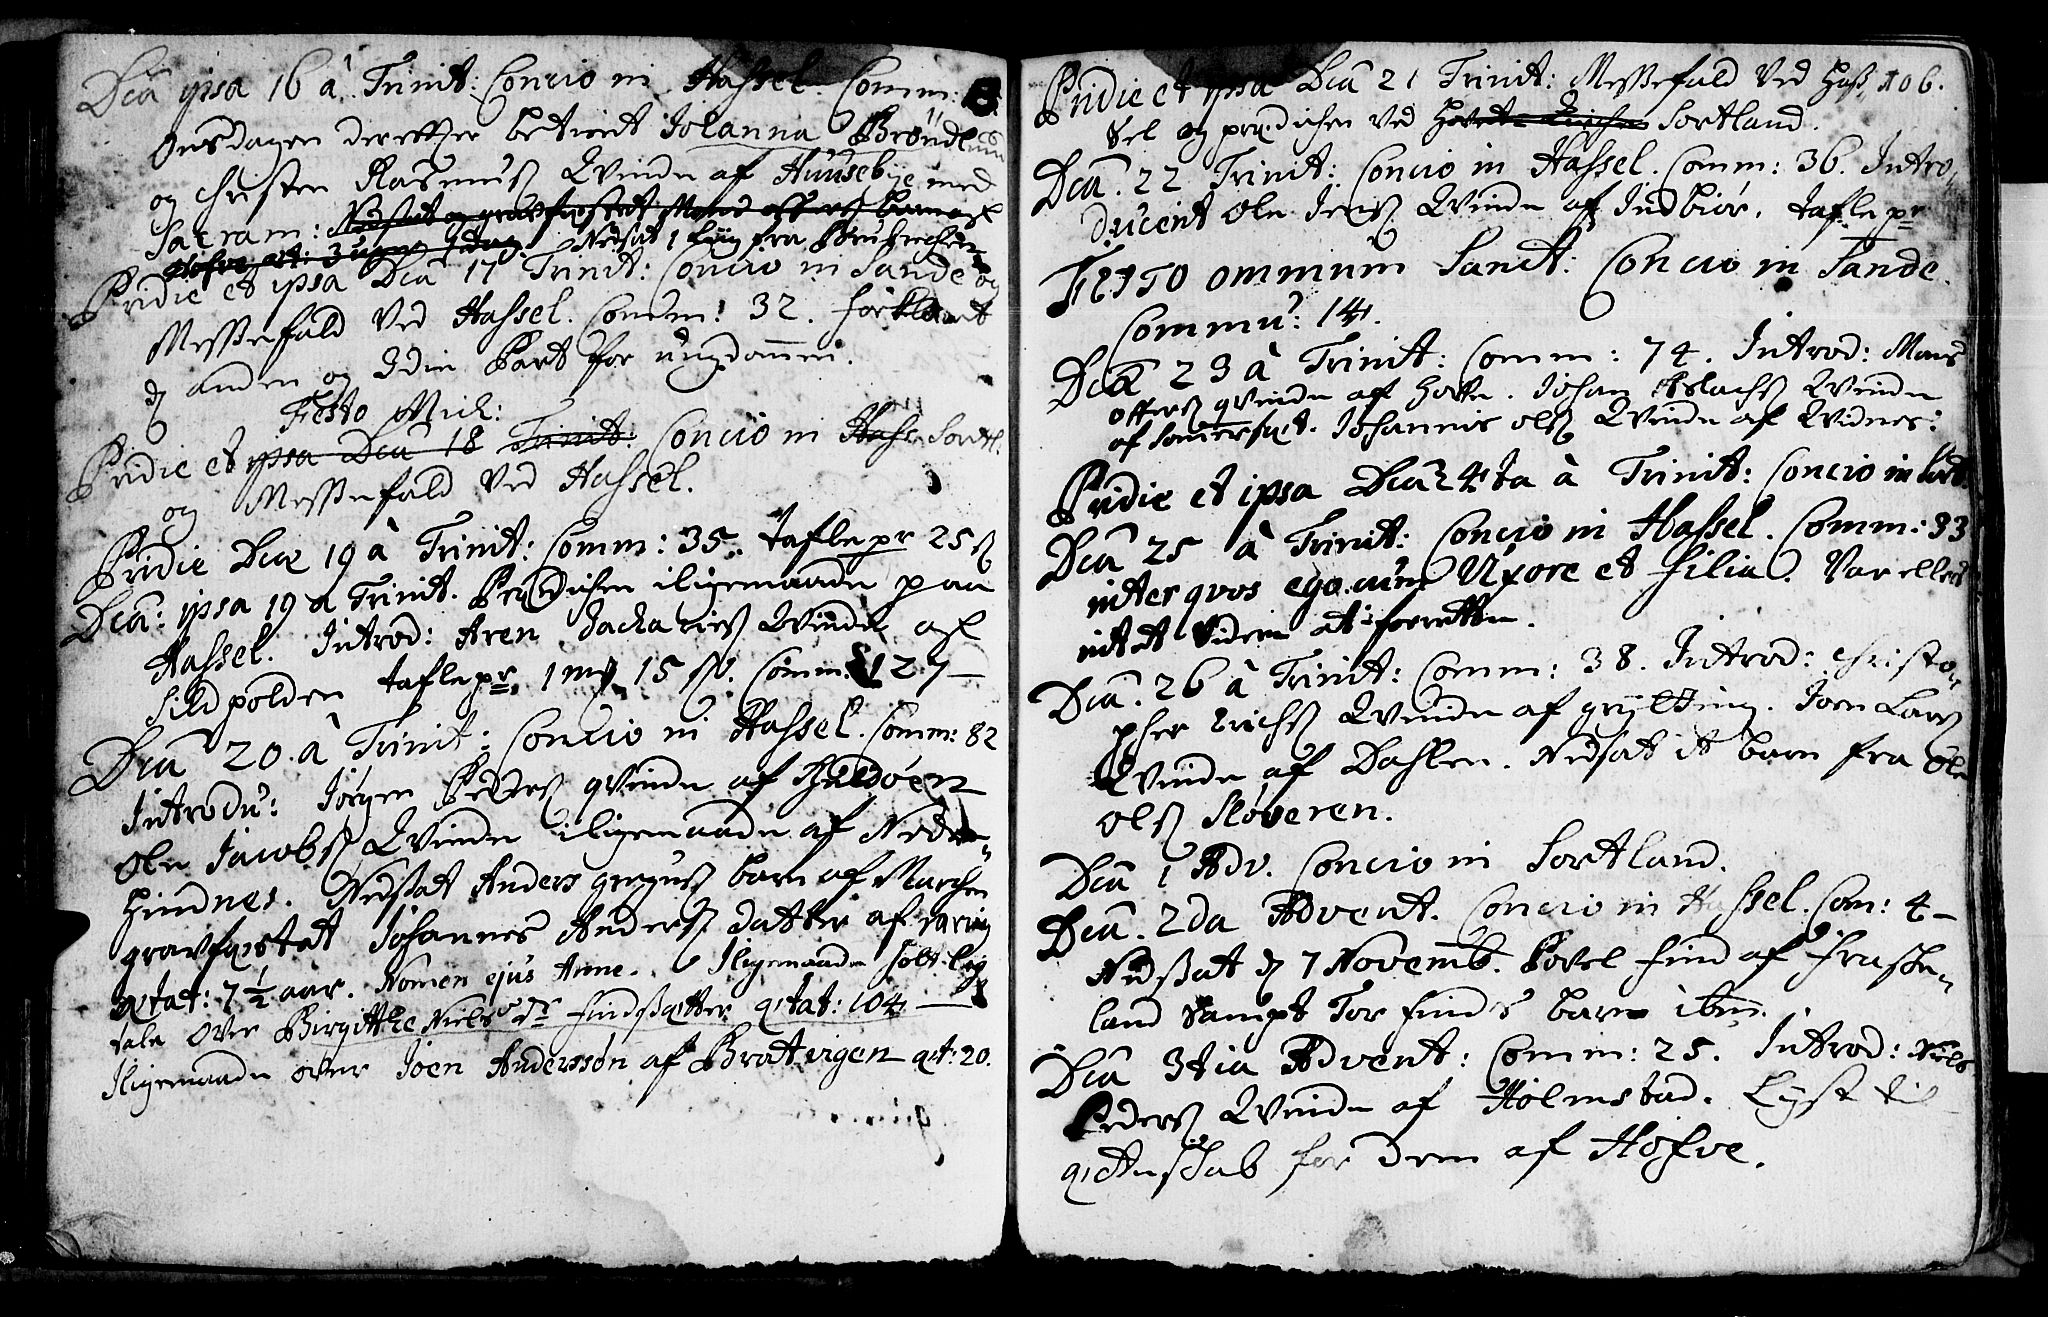 Dca ipsa 16 à Trinit: Concio in Hassel. Comm:
Onsdagen derefter betient Johanna Bröndlund
og Christen Rasmusß Qvinde af Huusebye med
Sacram: Nedsat og gravfæstet Mons Offersß barn af
Hofve æt: 3 uger 1 dag. Nedsat 1 Liig fra
Pridie et ipsa Dca 17 Trinit: Concio in Sande og
Messefald Ved Hassel. Comm: 32. forklaret
d anden og 3die Part for ungdommen.
Festo Mich:
Pridie et ipsa Dca 18 Trinit: Concio in Hass Sortl:
og Messefald Ved Hassel.
Pridie Dcæ 19 à Trinit: Comm: 35. Tafle pr 25 ß
Dca: ipsa 19 a Trinit. Prædichen iligemaade paa
Hassel. Introd: Aren Zachariesß Qvinde af
Sildpolden tafle pr. 1 mk 15 ß. Comm: 127
Dca 20. à Trinit: Concio in Hassel. Comm: 82
Introdu: Jörgen Pedersß qvinde af
Ole Jacobsß Qvinde iligemaade af Nedre
Hindnes. Nedsat Anders Gregusß barn af Marchen
gravfæstet Johannes Andersß datter af
ætat: 7 1/2 aar. Nomen ejus Anne. Iligemaade holt lig
tale over Birgitthe Niels dr Findsætter ætat: 104
Iligemaade over Joen Anderssøn af Brotvigen æt: 20.
Pridie et ipsa Dca 21 Trinit: Messefald Ved Has, 106.
sel og prædichen ved Hovet Kirchen Sortland.
Dca. 22 Trinit: Concio in Hassel. Comm: 36. Intro,
ducent Ole Jensß Qvinde af Indbiör. tafle pr
Festo omnium Sanct: Concio in Sande.
Commu: 14.
Dca 23 à Trinit: Comm: 74. Introd: Mons
Offersß qvinde af Hofve. Johan Aslachsß Qvinde
af Somersæt. Johannis Olsß Qvinde af Qvidnes:
Pridie et ipsa Dca 24ta à Trinit: Concio in Sort.
Dca 25 à Trinit: Concio in Hassel. Comm: 33
inter qvos ego cum Uxore et filia. Var ellers
intet videre at forrette.
Dca. 26 à Trinit: Comm: 38. Introd: Christo,
pher Erichsß Qvinde af grÿtting. Joen Larsß
Qvinde af Dahlen. Nedsat et barn fra Ole
Olsß Slöveren.
Dca 1 Adv. Concio in Sortland.
Dca. 2da Advent. Concio in Hassel. Com: 4
Nedsat d 7 Novemb. Povel Find af Frasken,
land sampt Tor Finds barn ibm.
Dca 3tia Advent: Comm: 25. Introd: Niels
Pedersß Qvinde af Holmstad. Lyst til
æctenskab for Dem af Hofve.